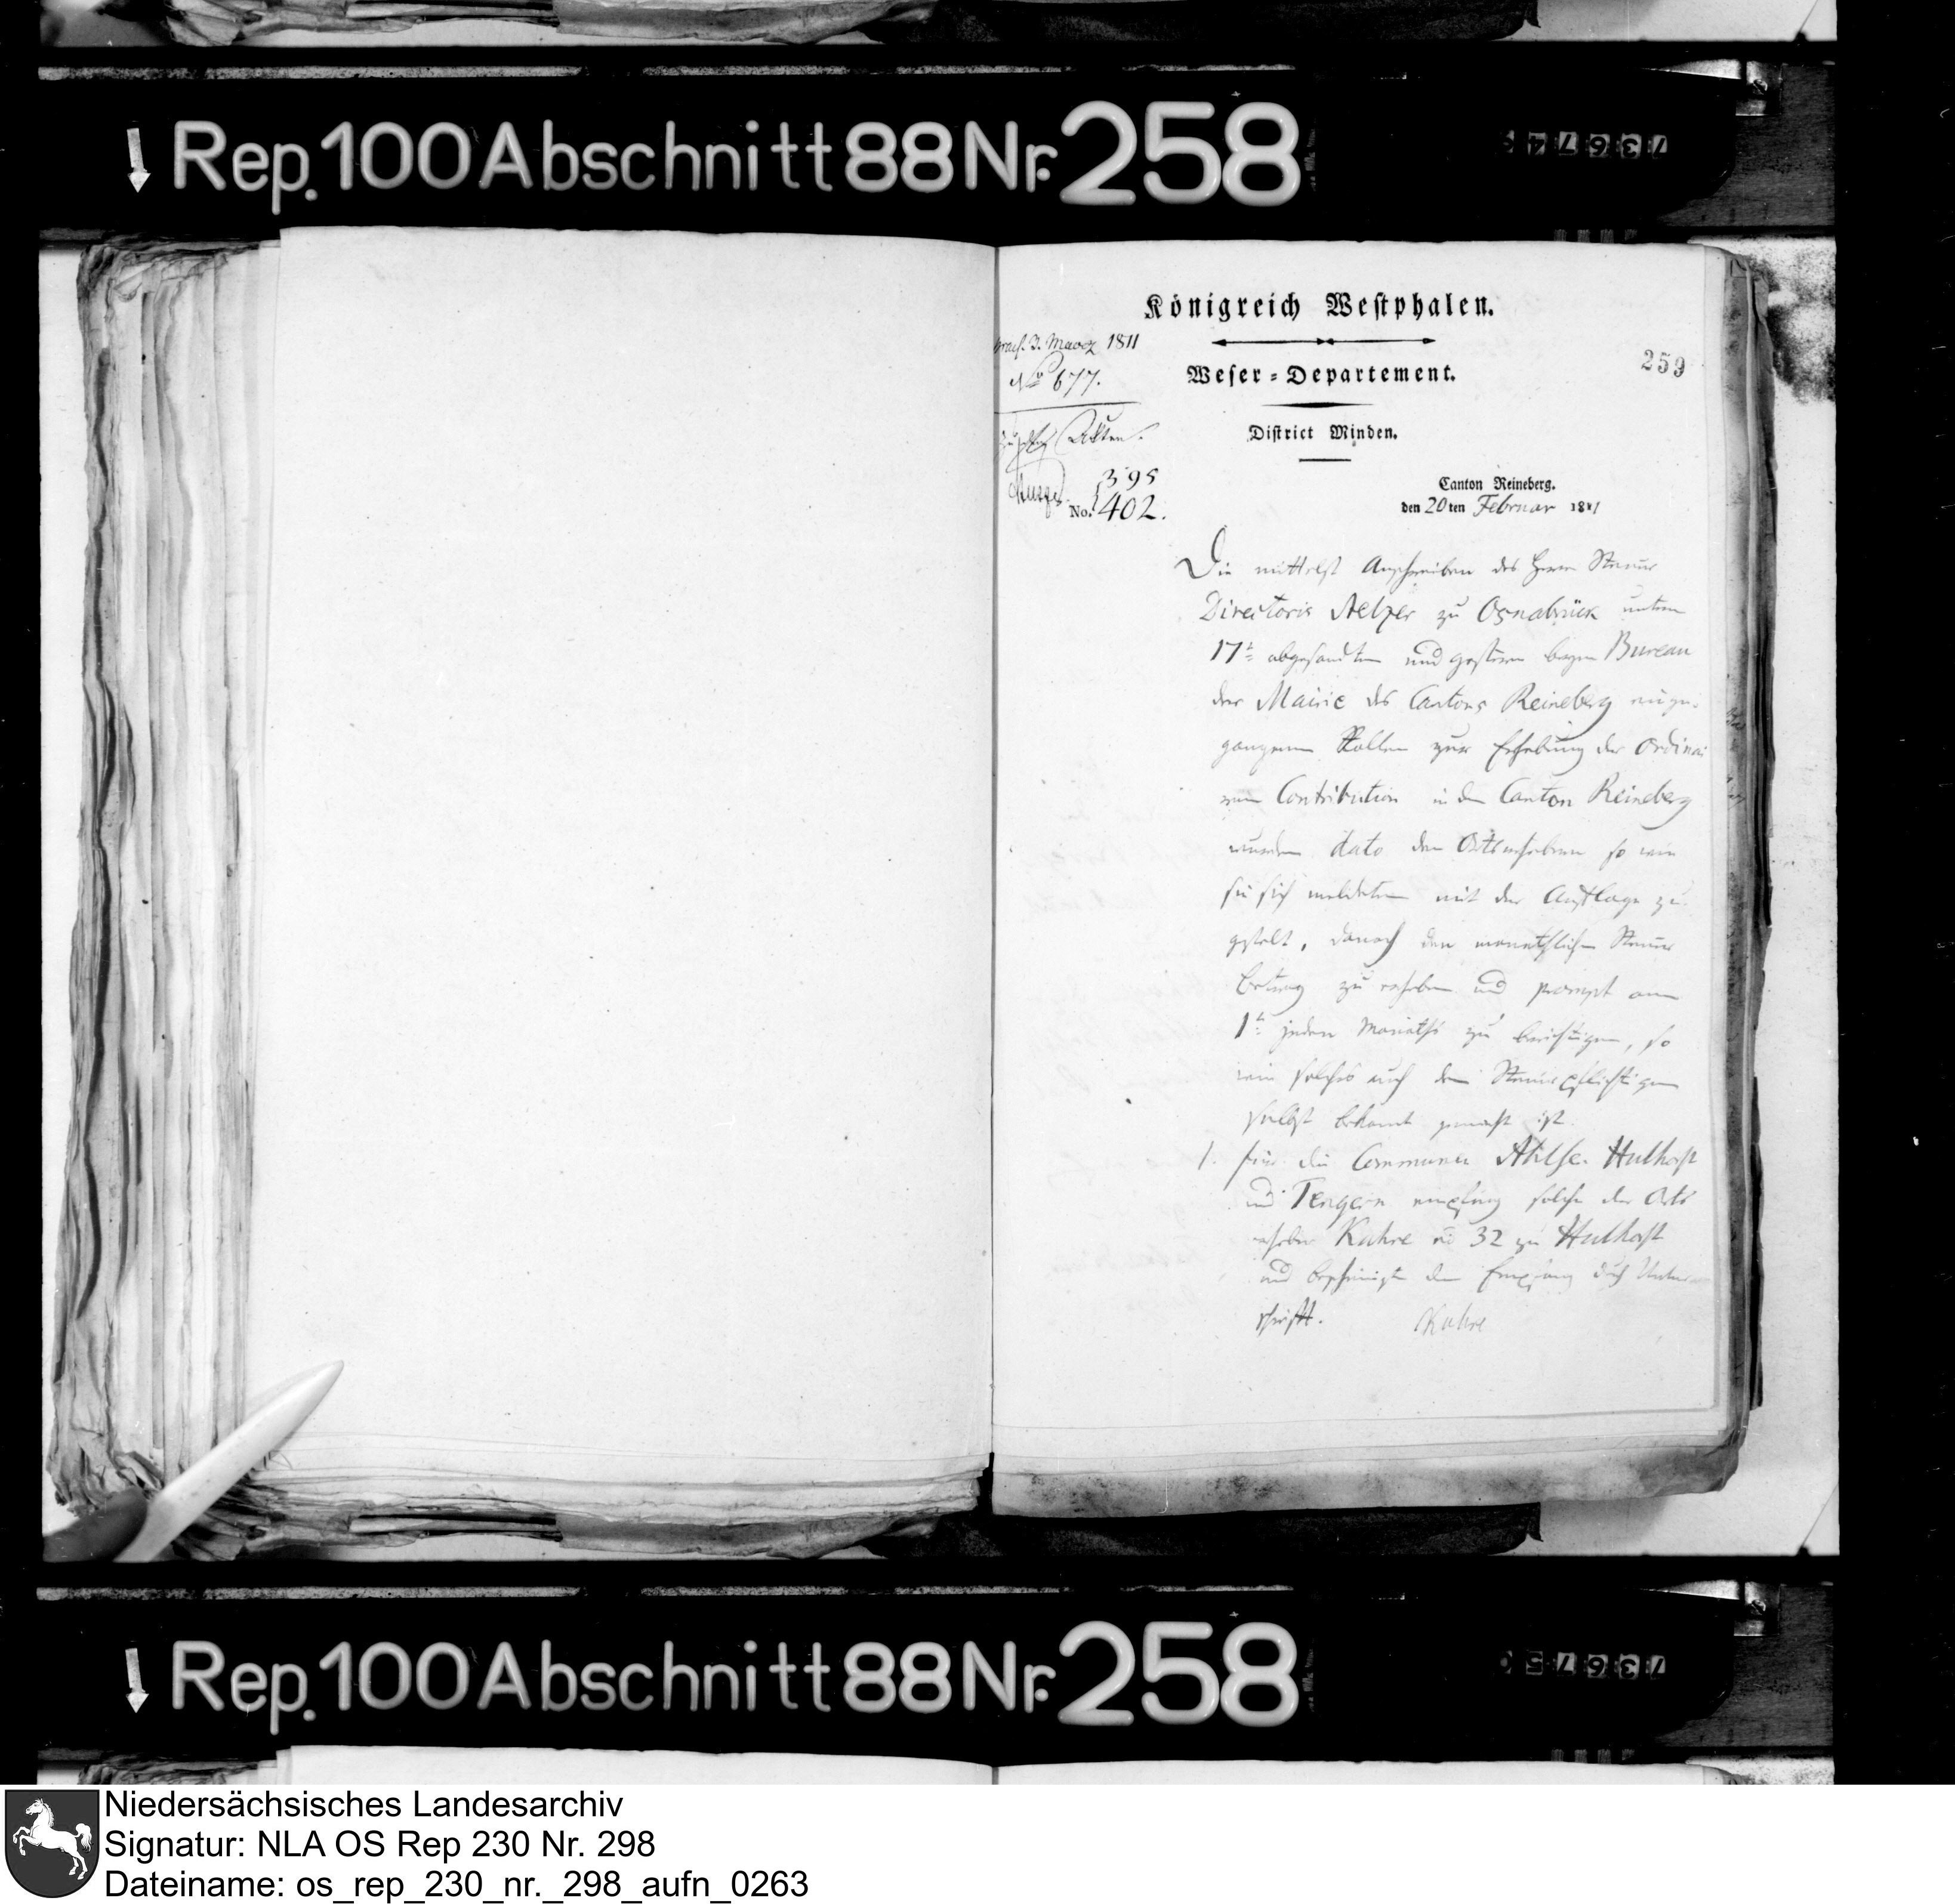 Rep. 100 Abschnitt 88 Nr. 258
Königreich Westphalen.
praes. 3. Maerz 1811
No 677.
Weser-Departement.
259
District Minden.
Acten.
395
No. 402.
Canton Reineberg.
den 20ten Februar 1811
Die mittelst Anschreiben des Herrn Steuer
Directoris zu Osnabrück unterm
17t abgesandten und gestern beym Bureau
der Mairie des Cantons Reineberg einge-
gangenen Rollen zur Erhebung der ordinai
ren Contribution in dem Canton Reineberg
wurden dato den Ortserhebern so wie
sie sich meldeten mit der Auflage zu
gestelt, danach den monathlichen Steuer
betrag zu erheben und prompt am
1t jeden Monaths zu berichtigen, so
wie solches auch den Steuerpflichtigen
selbst bekannt gemacht ist.
1. für die Communen Ahlse. Hulhorst
und Tengern empfing solche der Orts
erheber Kuhre no 32 zu Hulhorst
und bescheinigte den Empfang durch Unter
schrift. Kuhre
Rep. 100 Abschnitt 88 Nr. 258
Niedersächsisches Landesarchiv
Signatur: NLA OS Rep 230 Nr. 298
Dateiname: os_rep_230_nr._298_aufn_0263